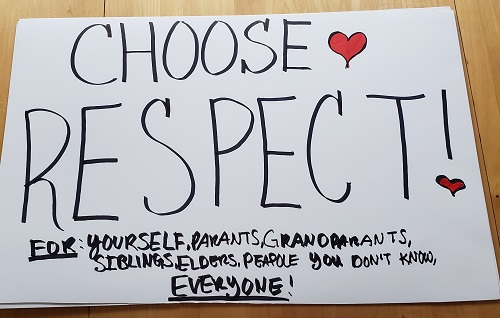 CHOOSE
RESPECT!
FOR: YOURSELF, PARANTS, GRANDPARANTS,
SIBLINGS, ELDERS, PEAPOLE YOU DON'T KNOW,
EVERYONE!